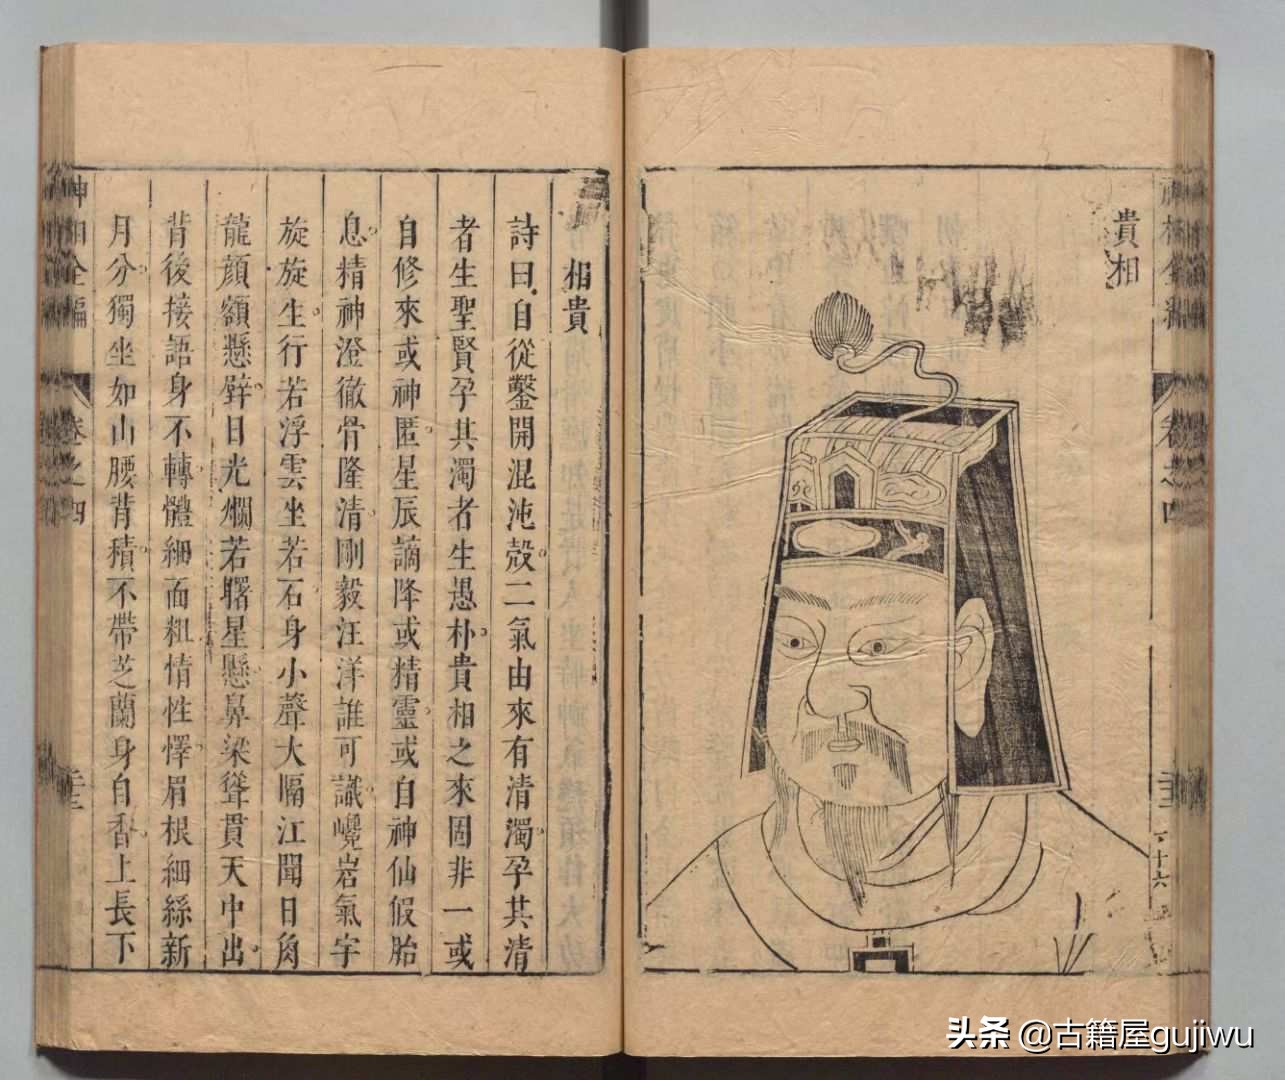 貴相
卷之四
六十六
相貴
詩曰自從鑿開混沌殼。二氣由來有清濁。孕其清
者生聖賢孕其濁者生愚朴。貴相之來固非一或
自修來或神匿。星辰謫降或精靈。或自神仙假胎
息。精神澄徹骨隆清。剛毅汪洋誰可識。巉岩氣宇
旋旋生。行若浮雲坐若石。身小聲大隔江聞日角
龍顏額懸壁。日光爛若曙星懸。鼻梁聳貫天中出。
背後接語身不轉。體細面粗情性懌。眉根細絲新
月分。獨坐如山腰背積。不帶芝蘭身自香。上長下
神相全編
卷之四
頭条 @古籍屋gujiwu